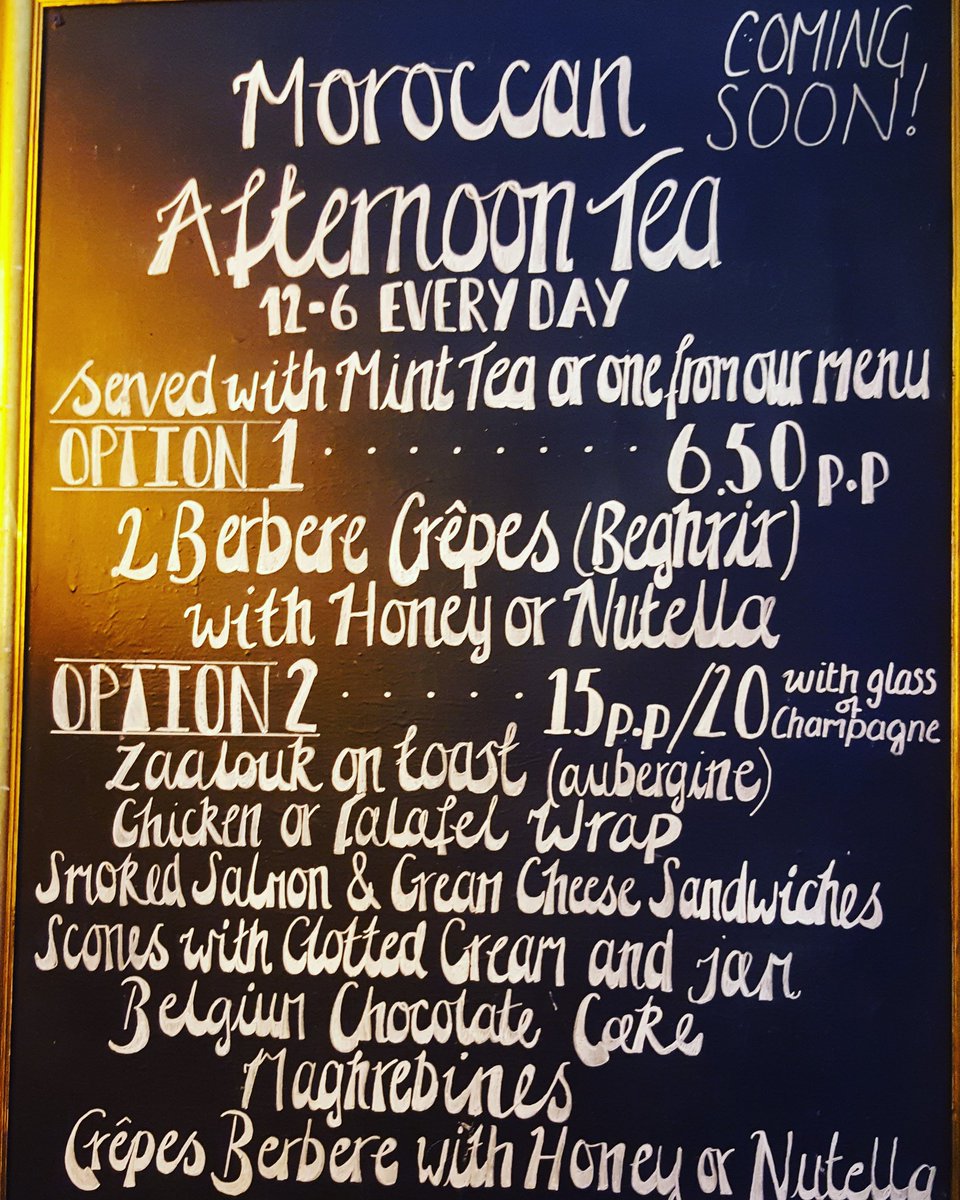 COMING
SOON!
Moroccan
Afternoon Tea
12-6 EVERY DAY
Served with Mint Tea or one from our menu
OPTION 1 ......... 6.50 p.p
2 Berbere Crêpes (Beghrir)
with Honey or Nutella
OPTION 2 ...... 15p.p/20 with glass
of
Champagne
Zaalouk on toast (aubergine)
Chicken or Falafel Wrap
Smoked Salmon & Cream Cheese Sandwiches
Scones with Clotted Cream and jam
Belgium Chocolate Cake
Maghrebines
Crêpes Berbere with Honey or Nutella